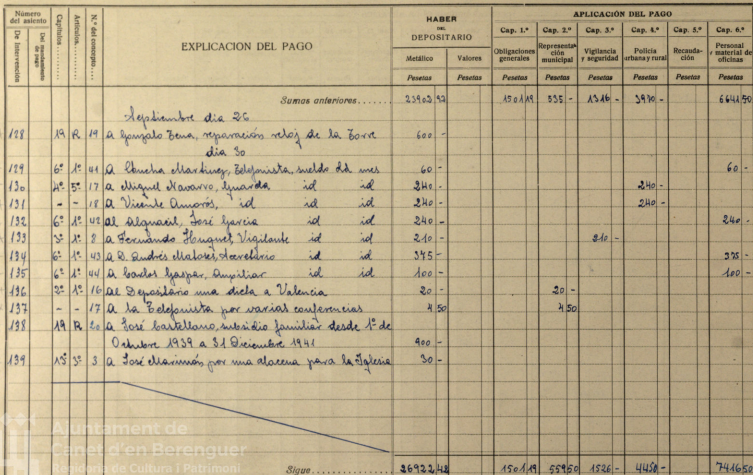 Número del asiento
De Intervención
Del mandamiento de pago
Capítulos
Artículos
N.º del concepto
EXPLICACION DEL PAGO
HABER DEL DEPOSITARIO
Metálico
Valores
APLICACIÓN DEL PAGO
Cap. 1.º Cap. 2.º Cap. 3.º Cap. 4.º Cap. 5.º Cap. 6.º
Obligaciones generales
Representación municipal
Vigilancia y seguridad
Policía urbana y rural
Recaudación
Personal y material de oficinas
Pesetas Pesetas Pesetas Pesetas Pesetas Pesetas Pesetas Pesetas
Sumas anteriores 23902 92 1501 19 535 - 1316 - 3970 - 6641 50
Septiembre dia 26
128 19 R 19 a Gonzalo Tena, reparación reloj de la Torre 600 -
dia 30
129 6º 1º 41 a Concha Martinez, telefonista, sueldo del mes 60 - 60 -
130 4º 5º 17 a Miguel Navarro, Guarda id id 240 - 240 -
131 - - 18 a Vicente Amorós, id id 240 - 240 -
132 6º 1º 42 al alguacil, José Garcia id id 240 - 240 -
133 3º 1º 8 a Fernando Huguet, Vigilante id id 210 - 210 -
134 6º 1º 43 a D. Andrés Matoses, secretario id id 375 - 375 -
135 6º 1º 44 a Carlos Gaspar, auxiliar id id 100 - 100 -
136 2º 1º 16 al Depositario una dieta a Valencia 20 - 20 -
137 - - 17 a la telefonista por varias conferencias 4 50 4 50
138 19 R 20 a José Castellano, subsidio familiar desde 1º de
Octubre 1939 a 31 Diciembre 1941 900 -
139 13 3º 3 a José Marimón por una alacena para la Iglesia 30 -
Sigue 26922 42 1501 19 559 50 1526 - 4450 - 7416 50
Ajuntament de
Canet d'en Berenguer
Regidoria de Cultura i Patrimoni